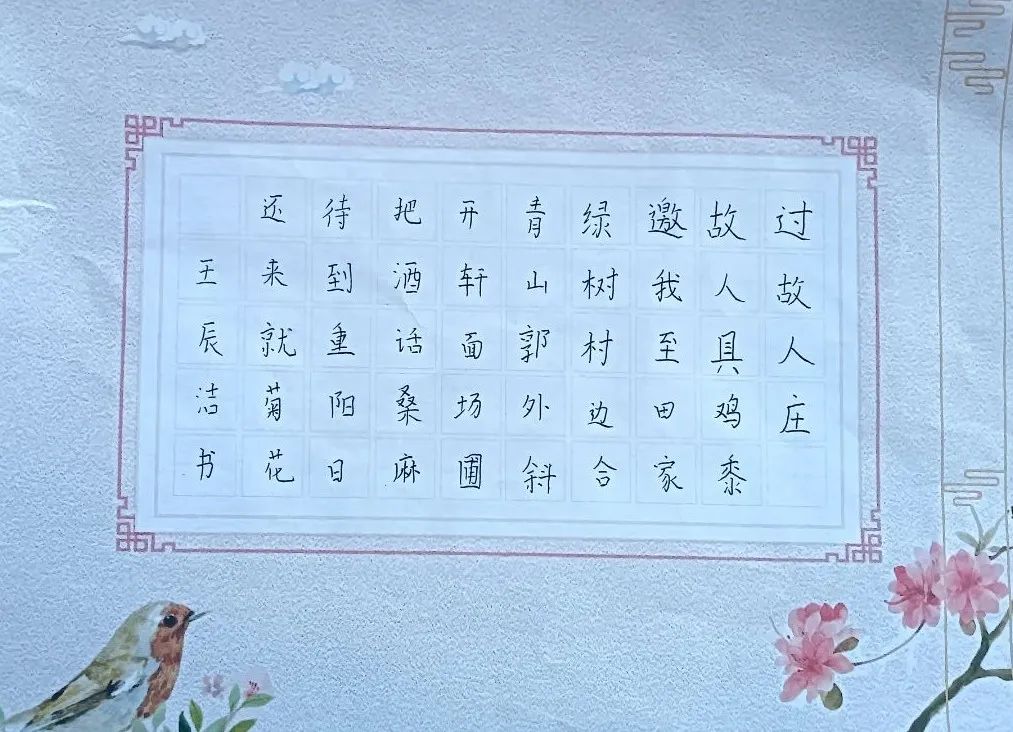 过故人庄
故人具鸡黍
邀我至田家
绿树村边合
青山郭外斜
开轩面场圃
把酒话桑麻
待到重阳日
还来就菊花
王辰洁书